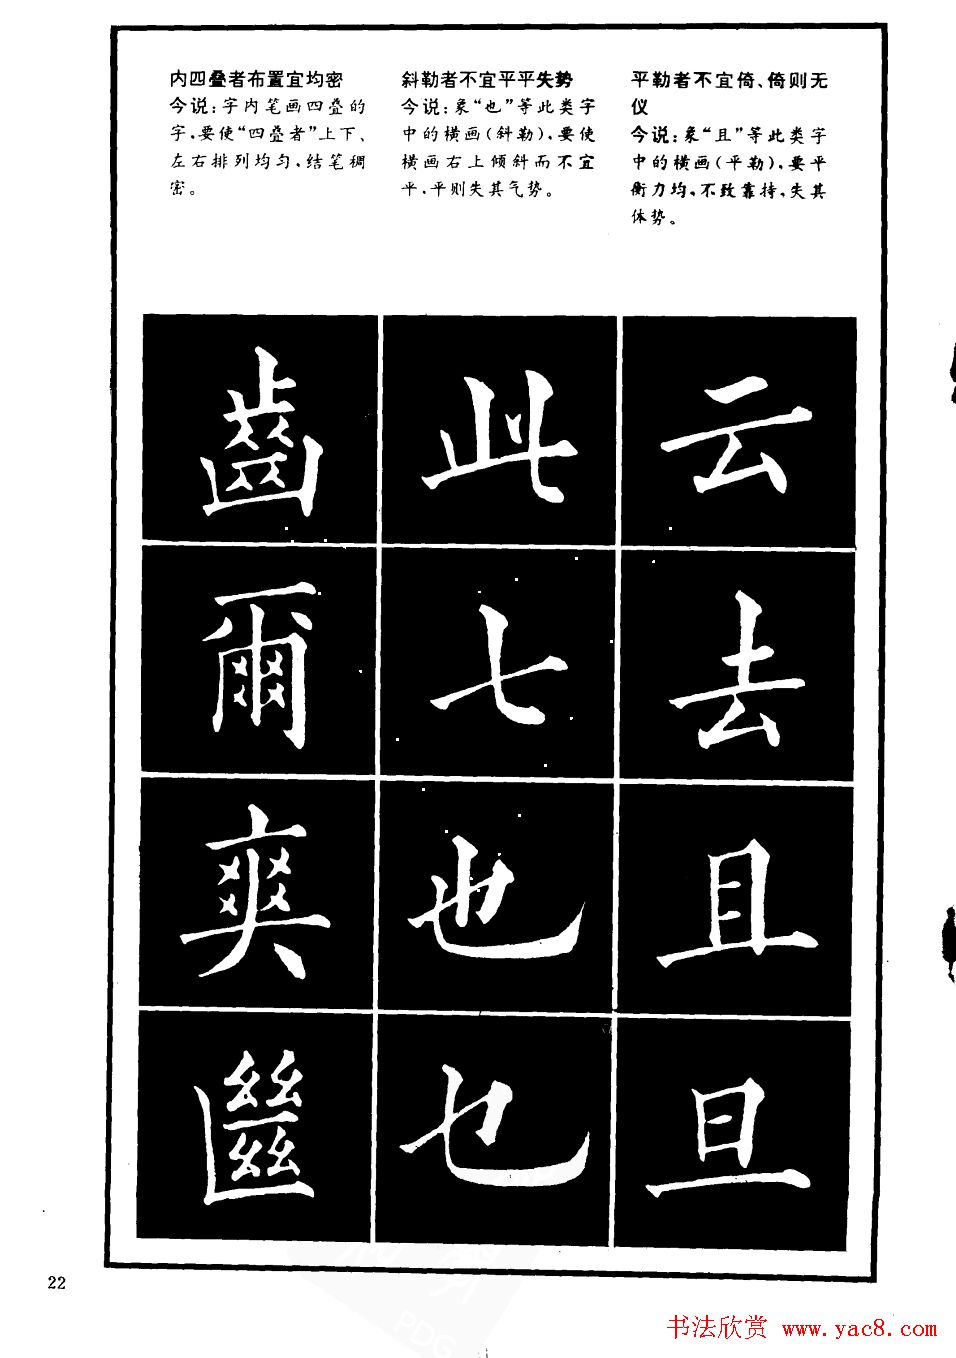 内四叠者布置宜均密
今说:字内笔画四叠的
字,要使“四叠者”上下、
左右排列均匀,结笔稠
密。
斜勒者不宜平平失势
今说:象“也”等此类字
中的横画(斜勒),要使
横画右上倾斜而不宜
平,平则失其气势。
平勒者不宜倚、倚则无
仪
今说:象“且”等此类字
中的横画(平勒),要平
衡力均,不致靠持,失其
体势。
齒 此 云
爾 七 去
爽 也 且
㡭 乜 旦
22
书法欣赏 www.yac8.com